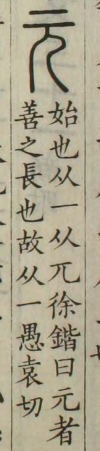 元
始也从一从兀徐鍇曰元者
善之長也故从一愚袁切